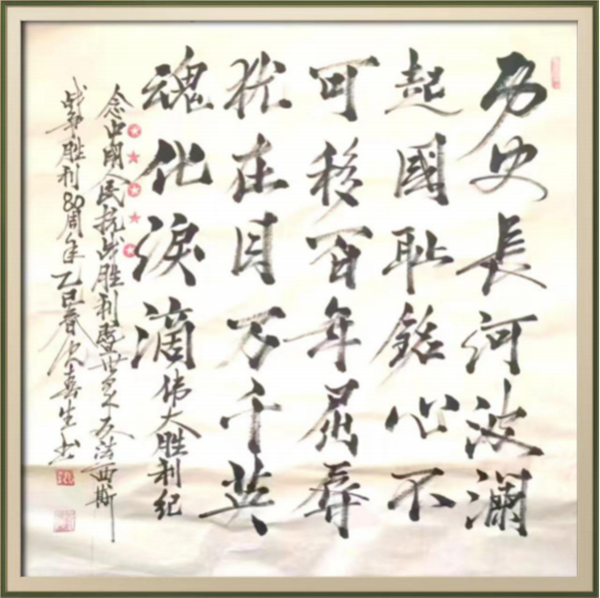 历史長河波瀾
起國恥銘心不
可移百年屈辱
犹在目万千英
魂化淚滴伟大胜利纪
念中國人民抗战胜利暨世界反法西斯
战争胜利80周年乙巳春次喜生书